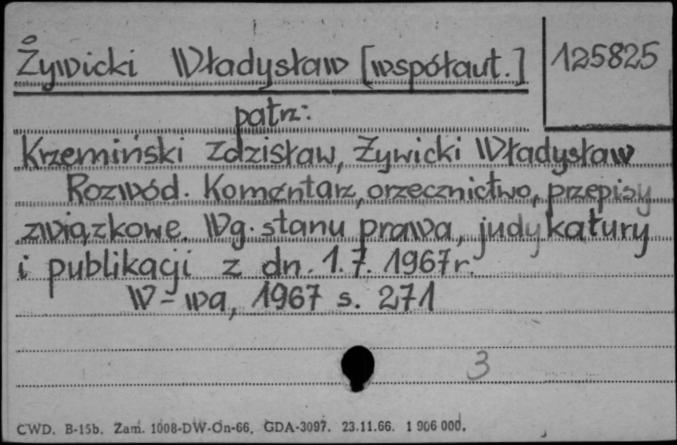 Żywicki Władysław [współaut.]
125825
patrz:
Krzemiński Zdzisław, Żywicki Władysław
Rozwód. Komentarz, orzecznictwo, przepisy
związkowe. Wg. stanu prawa, judykatury
i publikacji z dn. 1.7.1967r.
W-wa, 1967 s. 271
3
CWD. B-15b. Zam. 1008-DW-On-66. GDA-3097. 23.11.66. 1 906 000.